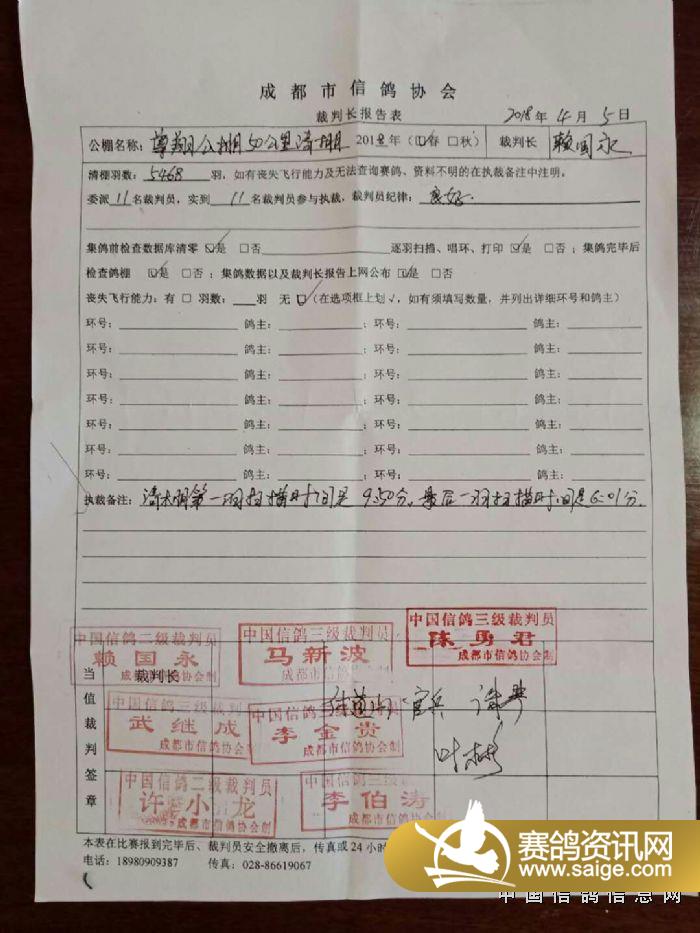 成都市信鸽协会
裁判长报告表 2018年4月5日
公棚名称：尊翔公棚50公里清棚 2018年（☑春 □秋） 裁判长 赖国永
清棚羽数：5468 羽，如有丧失飞行能力及无法查询赛鸽、资料不明的在执裁备注中注明。
委派 11 名裁判员，实到 11 名裁判员参与执裁，裁判员纪律：良好.
集鸽前检查数据库清零 ☑是 □否 逐羽扫描、唱环、打印 ☑是 □否；集鸽完毕后
检查鸽棚 ☑是 □否；集鸽数据以及裁判长报告上网公布 ☑是 □否
丧失飞行能力：有 □ 羽数：___羽 无 ☑（在选项框上划√，如有须填写数量，并列出详细环号和鸽主）
环号： 鸽主： ；环号： 鸽主：
环号： 鸽主： ；环号： 鸽主：
环号： 鸽主： ；环号： 鸽主：
环号： 鸽主： ；环号： 鸽主：
环号： 鸽主： ；环号： 鸽主：
环号： 鸽主： ；环号： 鸽主：
环号： 鸽主： ；环号： 鸽主：
执裁备注：清棚第一羽扫描时间是9:50分，最后一羽扫描时间是6:01分.
当值裁判签章
中国信鸽二级裁判员
赖国永
成都市信鸽协会制
裁判长
中国信鸽三级裁判员
马新波
成都市信鸽协会制
中国信鸽三级裁判员
陈勇君
成都市信鸽协会制
中国信鸽三级裁判员
武继成
成都市信鸽协会制
中国信鸽三级裁判员
李金贵
成都市信鸽协会制
官兵
叶彬
中国信鸽二级裁判员
许小龙
成都市信鸽协会制
中国信鸽三级裁判员
李伯涛
成都市信鸽协会制
本表在比赛报到完毕后、裁判员安全撤离后，传真或24小时
电话：18980909387 传真：028-86619067
赛鸽资讯网
www.saige.com
中国信鸽信息网